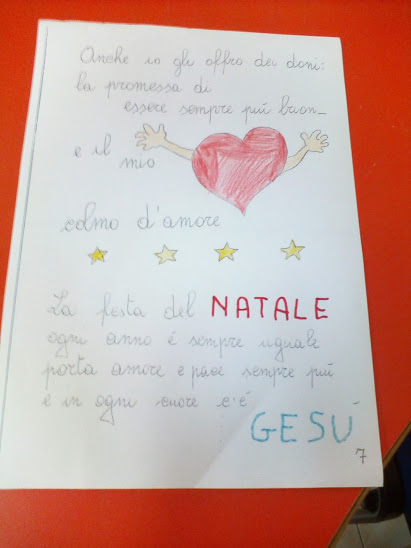 Anche io gli offro dei doni:
la promessa di
essere sempre più buon_
e il
mio
colmo d'amore
La festa del NATALE
ogni anno é sempre uguale
porta amore e pace sempre più
e in ogni cuore c'é
GESÙ
7